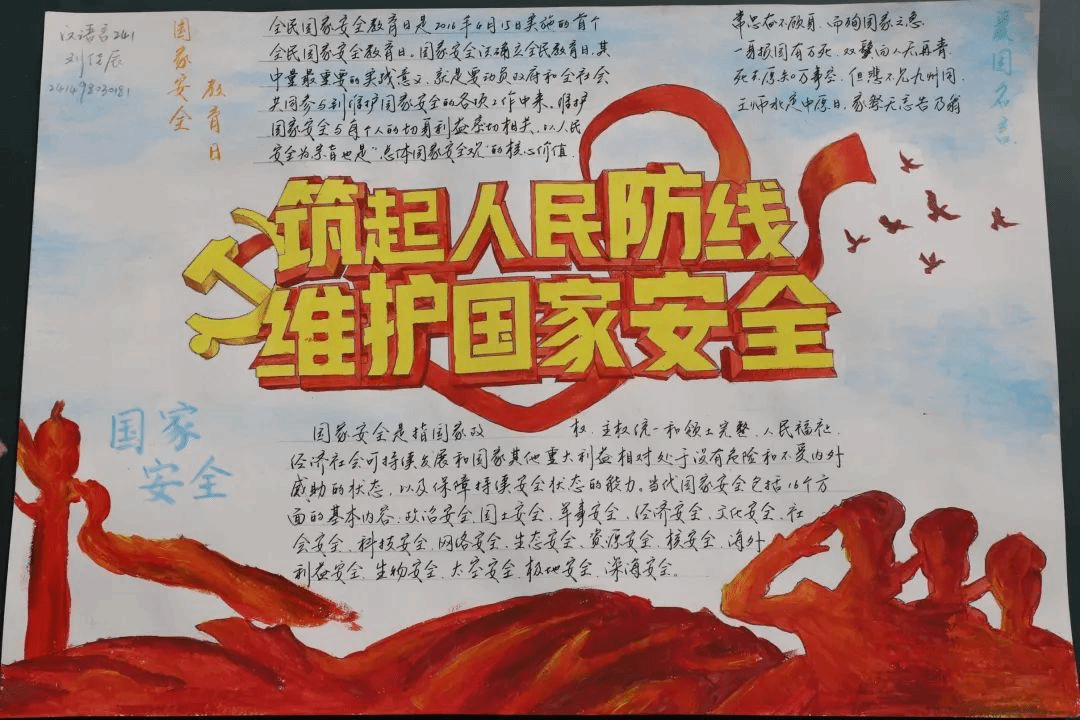 汉语言241
刘佳辰
24149830181
国家安全
教育日
全民国家安全教育日是2016年4月15日实施的首个
全民国家安全教育日。国家安全法确立全民教育日,其
中最最重要的实践意义,就是要动员政府和全社会
共同参与到维护国家安全的各项工作中来。维护
国家安全与每个人的切身利益紧切相关,以人民
安全为宗旨也是"总体国家安全观"的核心价值.
常思奋不顾身,而殉国家之急.
一身报国有万死,双鬓向人无再青.
死去原知万事空,但悲不见九州同.
王师北定中原日,家祭无忘告乃翁
爱国名言
筑起人民防线
维护国家安全
国家
安全
国家安全是指国家政 权、主权统一和领土完整、人民福祉、
经济社会可持续发展和国家其他重大利益相对处于没有危险和不受内外
威胁的状态,以及保障持续安全状态的能力。当代国家安全包括16个方
面的基本内容:政治安全、国土安全、军事安全、经济安全、文化安全、社
会安全、科技安全、网络安全、生态安全、资源安全、核安全、海外
利益安全、生物安全、太空安全、极地安全、深海安全。